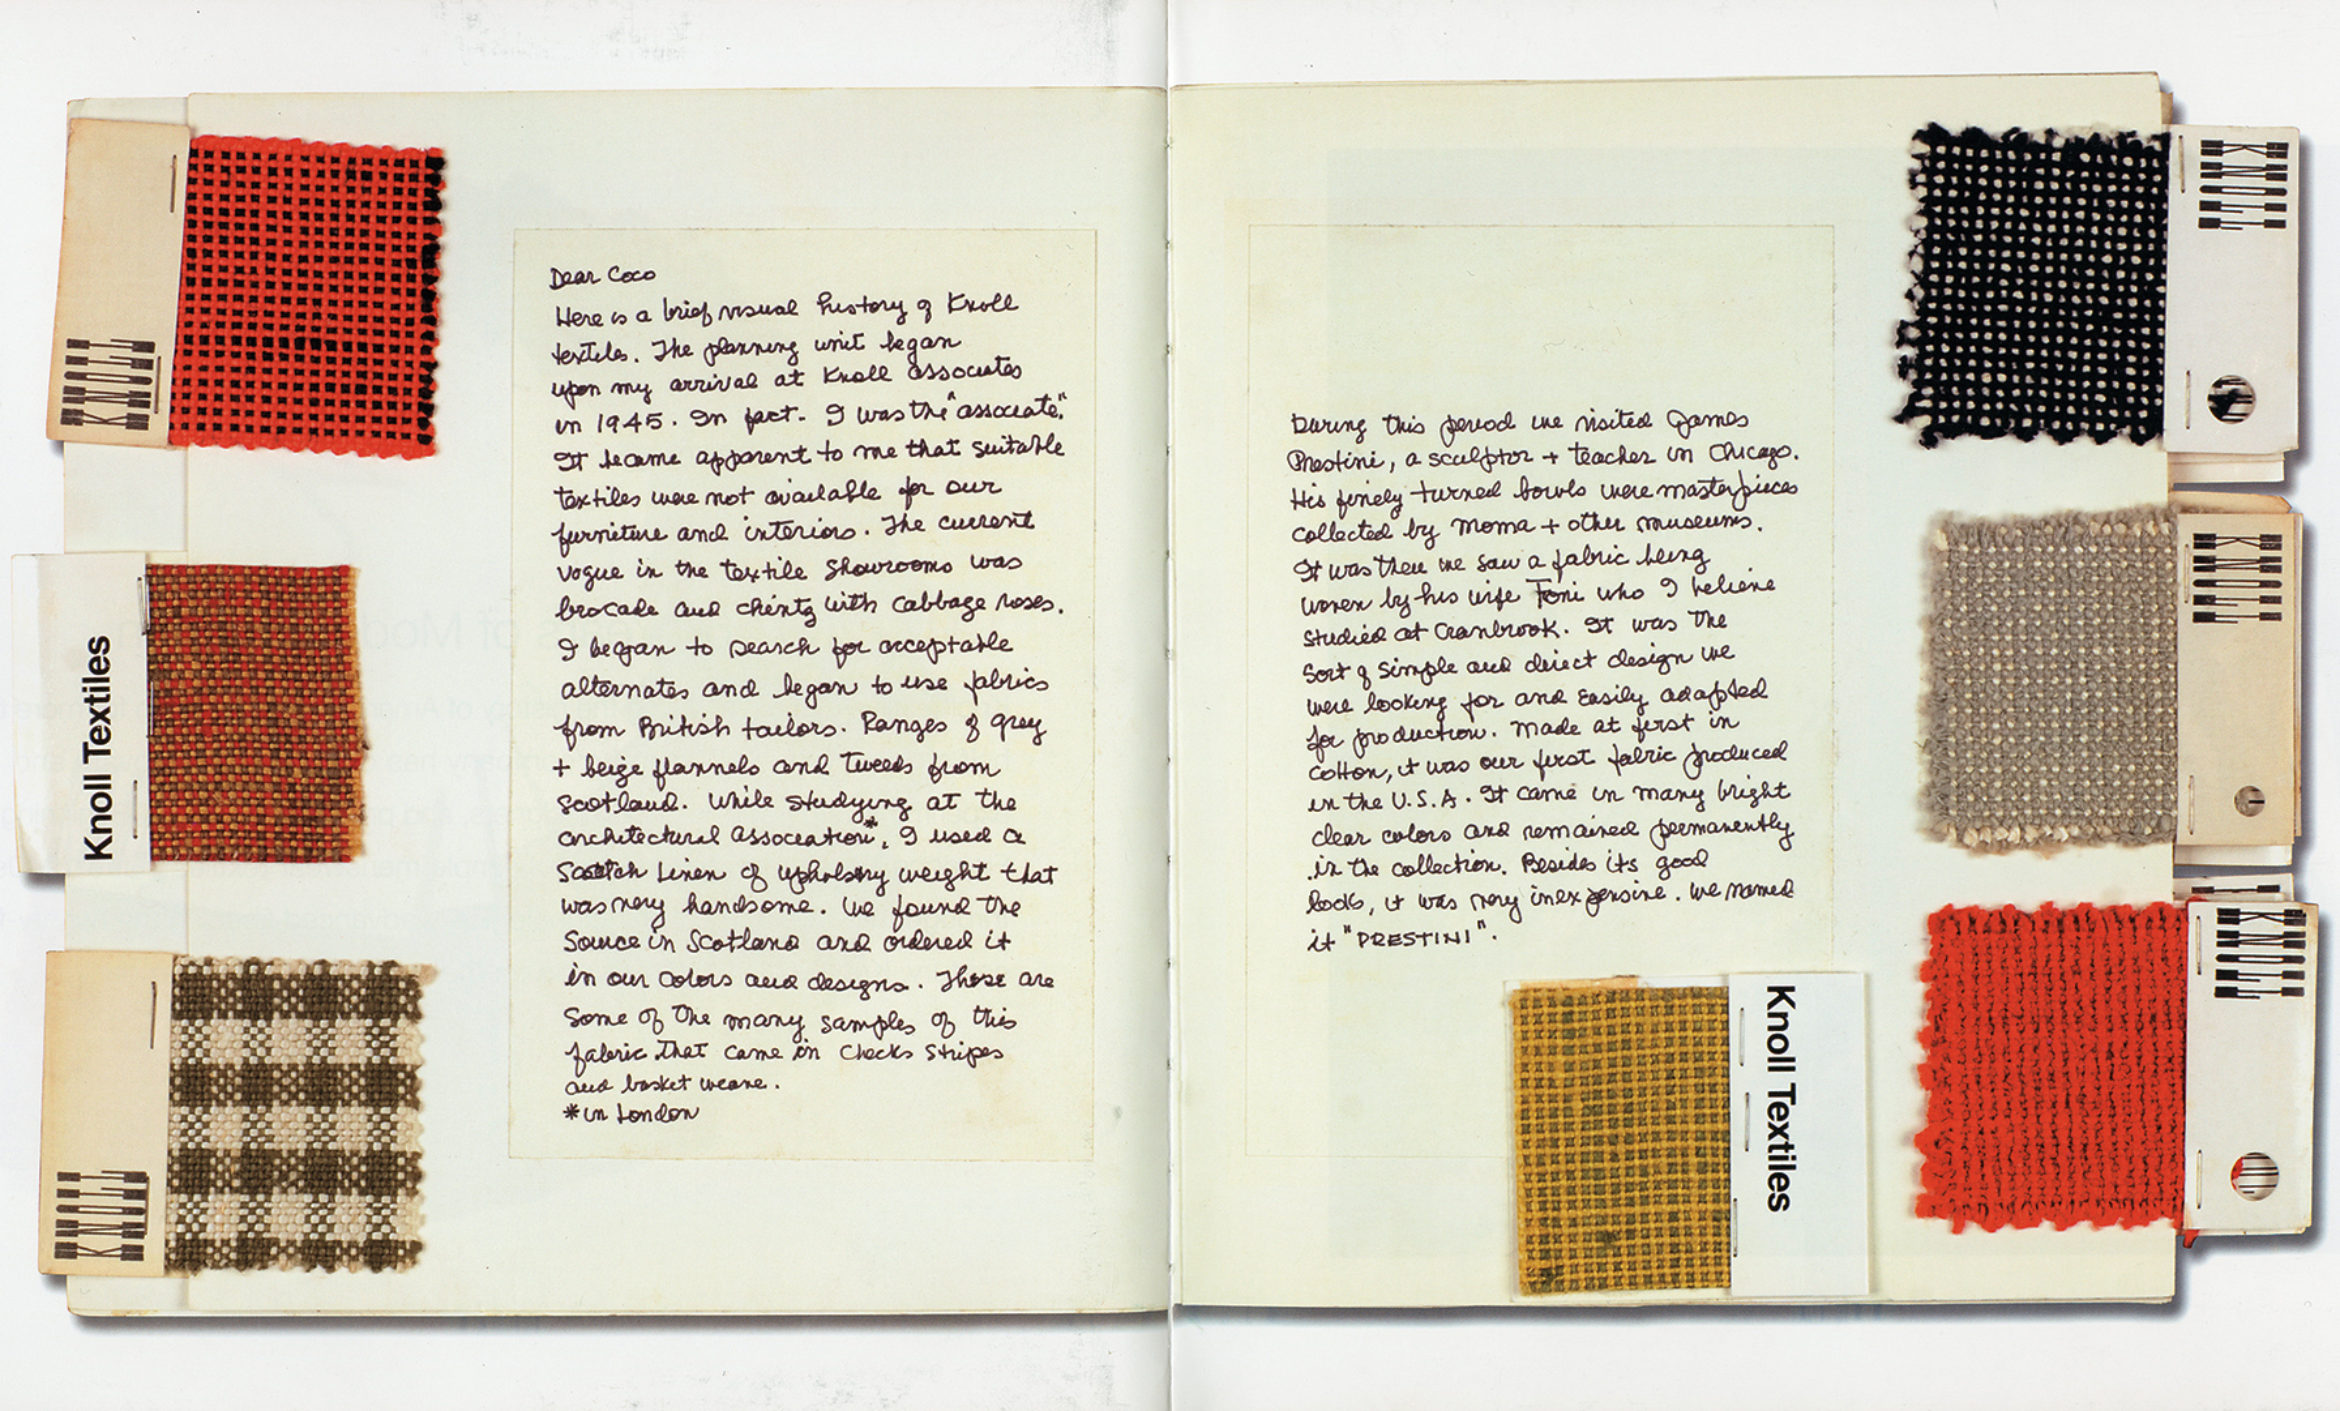 KNOLL
Knoll Textiles
KNOLL
Dear Coco
Here is a brief visual history of Knoll
textiles. The planning unit began
upon my arrival at Knoll associates
in 1945. In fact - I was the "associate."
It became apparent to me that suitable
textiles were not available for our
furniture and interiors. The current
vogue in the textile showrooms was
brocade and chintz with cabbage roses.
I began to search for acceptable
alternates and began to use fabrics
from British tailors. Ranges of grey
+ beige flannels and tweeds from
Scotland. While studying at the
architectural association*, I used a
Scotch linen of upholstry weight that
was very handsome. We found the
source in Scotland and ordered it
in our colors and designs. These are
some of the many samples of this
fabric that came in checks stripes
and basket weave.
*in London
During this period we visited James
Prestini, a sculptor + teacher in Chicago.
His finely turned bowls were masterpieces
collected by Moma + other museums.
It was then we saw a fabric being
woven by his wife Toni who I believe
studied at Cranbrook. It was the
sort of simple and direct design we
were looking for and easily adapted
for production. Made at first in
cotton, it was our first fabric produced
in the U.S.A. It came in many bright
clear colors and remained permanently
in the collection. Besides its good
looks, it was very inexpensive. We named
it "PRESTINI".
Knoll Textiles
KNOLL
KNOLL
KNOLL